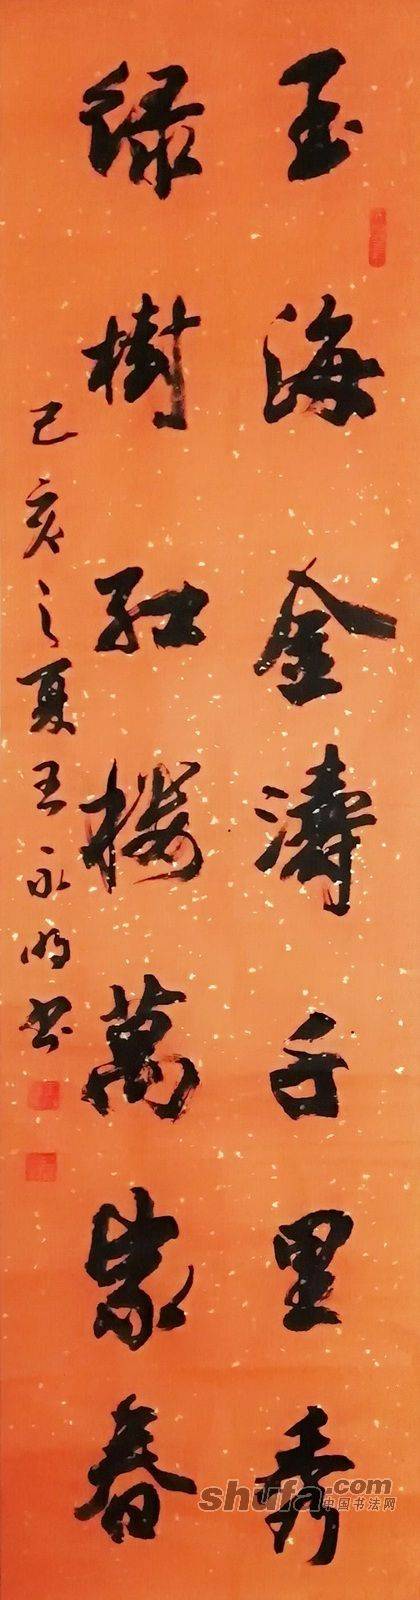 玉海金涛千里秀
绿樹红楼萬家春
己亥之夏王永明书
shufa.com
中国书法网